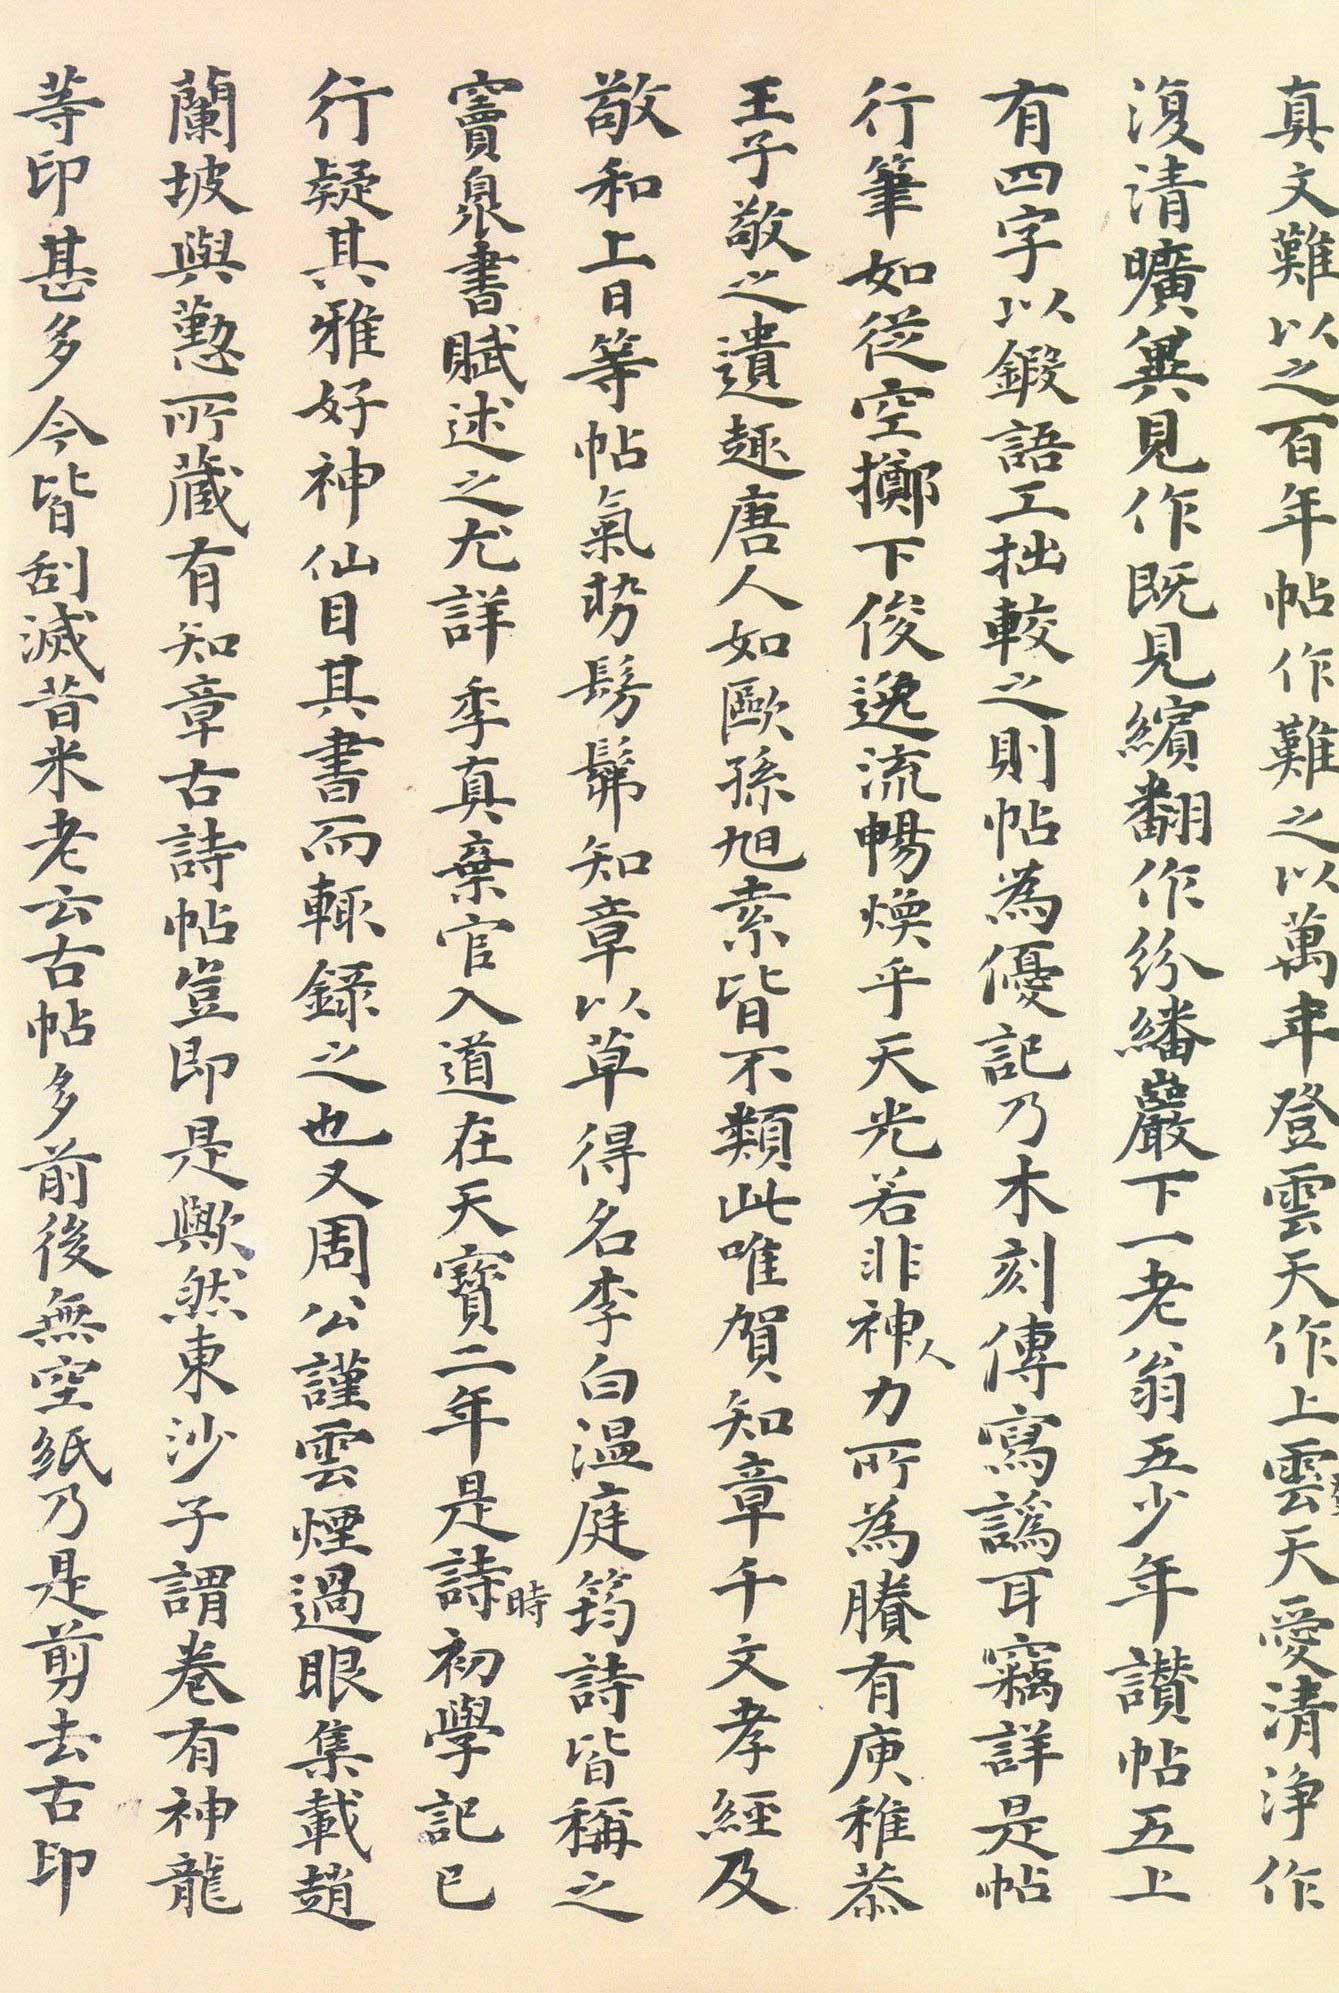 真文難以之百年帖作難之以萬年登雲天作上雲天愛清淨作
復清曠異見作既見繽翻作紛繙巖下一老翁五少年讚帖五上
有四字以鍛語工拙較之則帖為優記乃木刻傳寫譌耳竊詳是帖
行筆如從空擲下俊逸流暢煥乎天光若非神人力所為賸有庾稚恭
王子敬之遺趣唐人如歐孫旭素皆不類此唯賀知章千文孝經及
敬和上日等帖氣勢髣髴知章以草得名李白溫庭筠詩皆稱之
竇臮書賦述之尤詳季真棄官入道在天寶二年是詩時初學記已
行疑其雅好神仙目其書而輒錄之也又周公謹雲煙過眼集載趙
蘭坡與懃所藏有知章古詩帖豈即是歟然東沙子謂卷有神龍
等印甚多今皆刮滅昔米老云古帖多前後無空紙乃是剪去古印